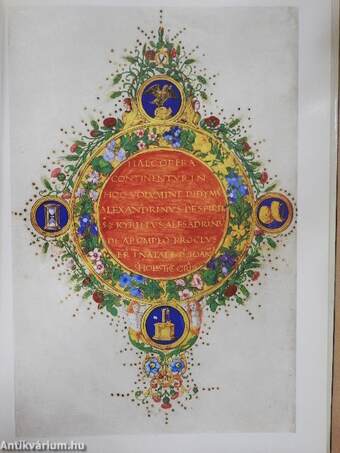 HAEC OPERA
CONTINENTVR IN
HOC VOLVMINE DIDYMVS
ALEXANDRINVS DE SPIRIT
KYRILLVS ALESADRINVS
DE AD PROCLVS
NATALE
Antikvárium.hu